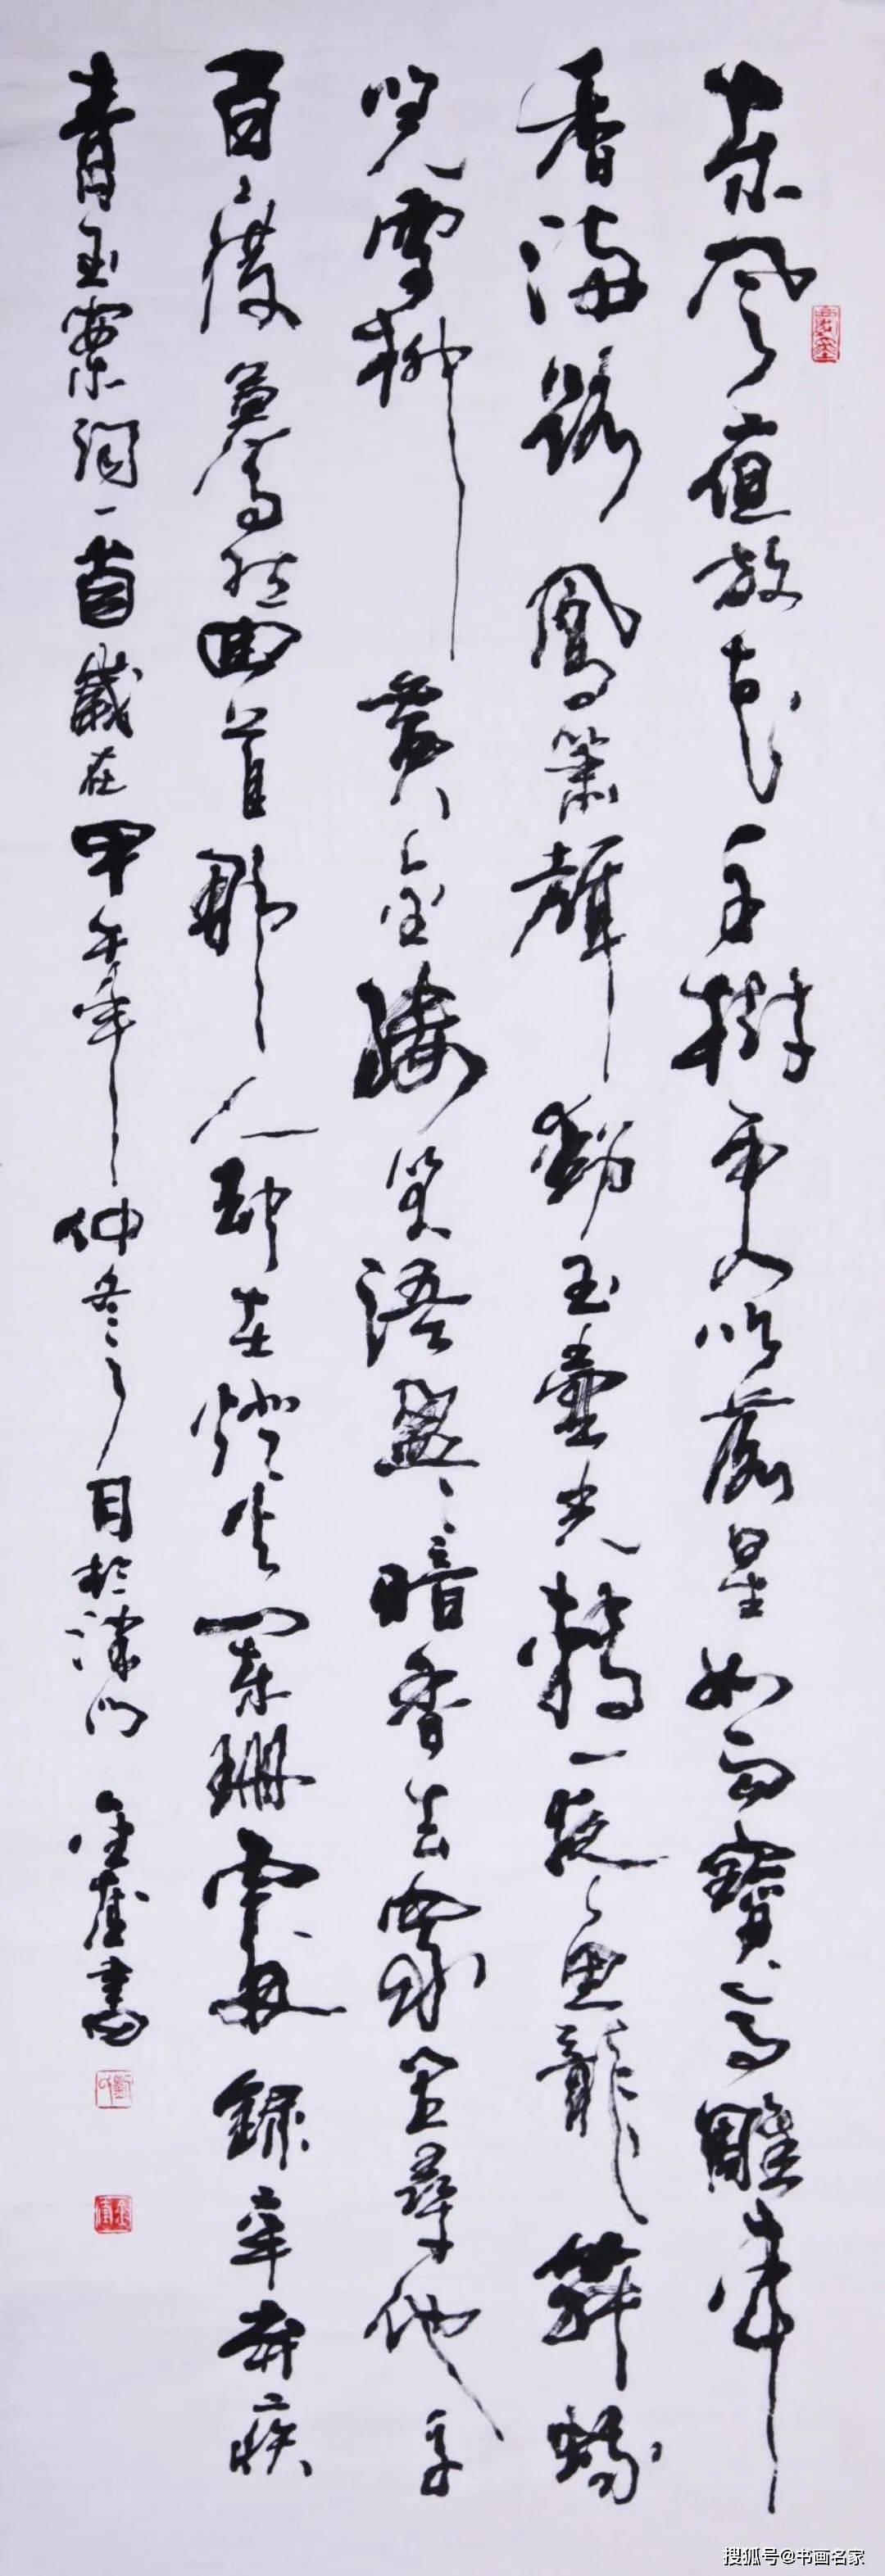 東風夜放花千樹更吹落星如雨寶馬雕車
香滿路鳳簫聲動玉壺光轉一夜魚龍舞蛾
兒雪柳黃金縷笑語盈盈暗香去眾里尋他千
百度驀然回首那人卻在燈火闌珊處錄辛弃疾
青玉案詞一首歲在甲午年仲冬月於津門 金奎書
搜狐号@书画名家